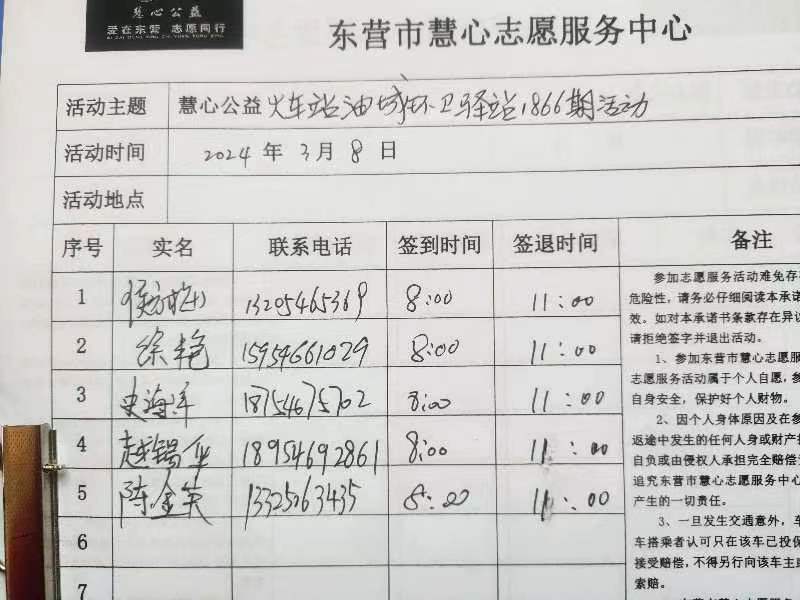 慧心公益
爱在东营 志愿同行
东营市慧心志愿服务中心
活动主题 慧心公益火车站油城环卫驿站1866期活动
活动时间 2024年3月8日
活动地点
序号 实名 联系电话 签到时间 签退时间 备注
1 13205465369 8:00 11:00
2 徐艳 15954661029 8:00 11:00
3 史海洋 18754675702 8:00 11:00
4 赵锡华 18954692861 8:00 11:00
5 陈金英 13325063435 8:00 11:00
6
7
参加志愿服务活动难免存
危险性，请务必仔细阅读本承诺
效。如对本承诺书条款存在异议
请拒绝签字并退出活动。
1、参加东营市慧心志愿服
志愿服务活动属于个人自愿，参
自身安全，保护好个人财物。
2、因个人身体原因及在参
返途中发生的任何人身或财产
自负或由侵权人承担完全赔偿
追究东营市慧心志愿服务中心
产生的一切责任。
3、一旦发生交通意外，车
车搭乘者认可只在该车已投保
接受赔偿，不得另行向该车主或
索赔。